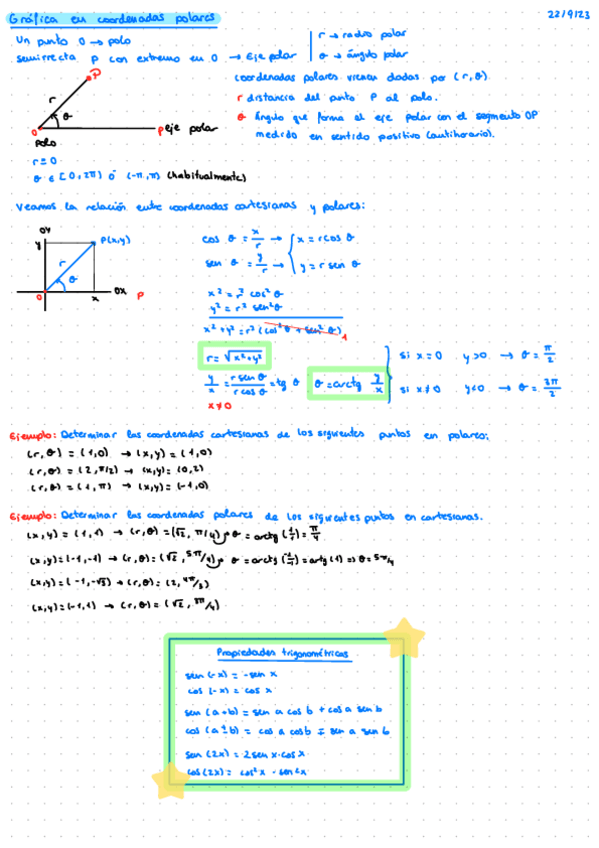 Gráfica en coordenadas polares
22/9/23
Un punto O → polo
semirrecta P con extremo en O → Eje polar
r → radio polar
θ → ángulo polar
coordenadas polares vienen dadas por (r, θ)
r distancia del punto P al polo.
θ Ángulo que forma el eje polar con el segmento OP
medido en sentido positivo (antihorario).
P
r
θ
O
P eje polar
Polo
r ≥ 0
θ ∈ [0, 2π) ó (-π, π) (habitualmente)
Veamos la relación entre coordenadas cartesianas y polares:
OY
y
P(x,y)
r
θ
O
x
OX
P
cos θ = x/r → x = r cos θ
sen θ = y/r → y = r sen θ
x² = r² cos² θ
y² = r² sen² θ
x² + y² = r² (cos² θ + sen² θ)
1
r = √x² + y²
y/x = r sen θ / r cos θ = tg θ
x ≠ 0
θ = arctg y/x
si x = 0 y > 0 → θ = π/2
si x ≠ 0 y < 0 → θ = 3π/2
Ejemplo: Determinar las coordenadas cartesianas de los siguientes puntos en polares:
(r, θ) = (1, 0) → (x, y) = (1, 0)
(r, θ) = (2, π/2) → (x, y) = (0, 2)
(r, θ) = (1, π) → (x, y) = (-1, 0)
Ejemplo: Determinar las coordenadas polares de los siguientes puntos en cartesianas.
(x, y) = (1, 1) → (r, θ) = (√2, π/4) θ = arctg (1/1) = π/4
(x, y) = (-1, -1) → (r, θ) = (√2, 5π/4) θ = arctg (-1/-1) = artg (1) => θ = 5π/4
(x, y) = (-1, -√3) → (r, θ) = (2, 4π/3)
(x, y) = (-1, 1) → (r, θ) = (√2, 3π/4)
Propiedades trigonométricas
sen (-x) = -sen x
cos (-x) = cos x
sen (a+b) = sen a cos b + cos a sen b
cos (a ± b) = cos a cos b ∓ sen a sen b
sen (2x) = 2 sen x · cos x
cos (2x) = cos² x - sen² x